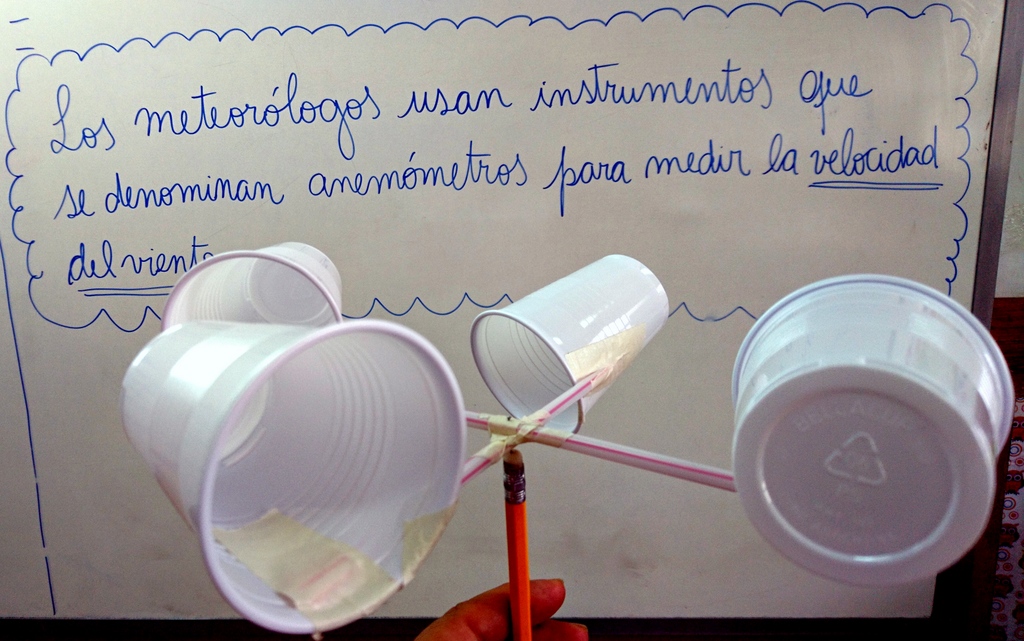 Los meteorólogos usan instrumentos que
se denominan anemómetros para medir la velocidad
del viento